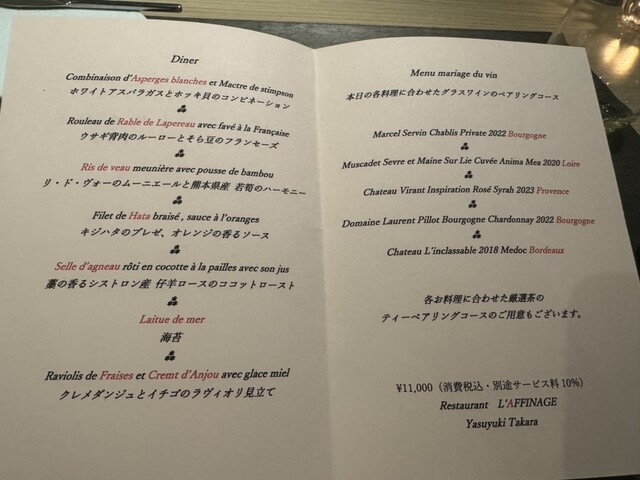 Diner
Combinaison d'Asperges blanches et Mactre de stimpson
ホワイトアスパラガスとホッキ貝のコンビネーション
Rouleau de Rable de Lapereau avec favé à la Française
ウサギ背肉のルーローとそら豆のフランセーズ
Ris de veau meunière avec pousse de bambou
リ・ド・ヴォーのムーニエールと熊本県産 若筍のハーモニー
Filet de Hata braisé , sauce à l'oranges
キジハタのブレゼ、オレンジの香るソース
Selle d'agneau rôti en cocotte à la pailles avec son jus
藁の香るシストロン産 仔羊ロースのココットロースト
Laitue de mer
海苔
Raviolis de Fraises et Cremt d'Anjou avec glace miel
クレメダンジュとイチゴのラヴィオリ見立て
Menu mariage du vin
本日の各料理に合わせたグラスワインのペアリングコース
Marcel Servin Chablis Private 2022 Bourgogne
Muscadet Sevre et Maine Sur Lie Cuvée Anima Mea 2020 Loire
Chateau Virant Inspiration Rosé Syrah 2023 Provence
Domaine Laurent Pillot Bourgogne Chardonnay 2022 Bourgogne
Chateau L'inclassable 2018 Medoc Bordeaux
各お料理に合わせた厳選茶の
ティーペアリングコースのご用意もございます。
¥11,000（消費税込・別途サービス料 10%）
Restaurant L'AFFINAGE
Yasuyuki Takara